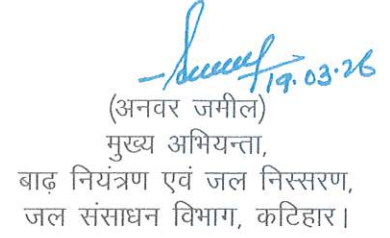 19.03.26
(अनवर जमील)
मुख्य अभियन्ता,
बाढ़ नियंत्रण एवं जल निस्सरण,
जल संसाधन विभाग, कटिहार।